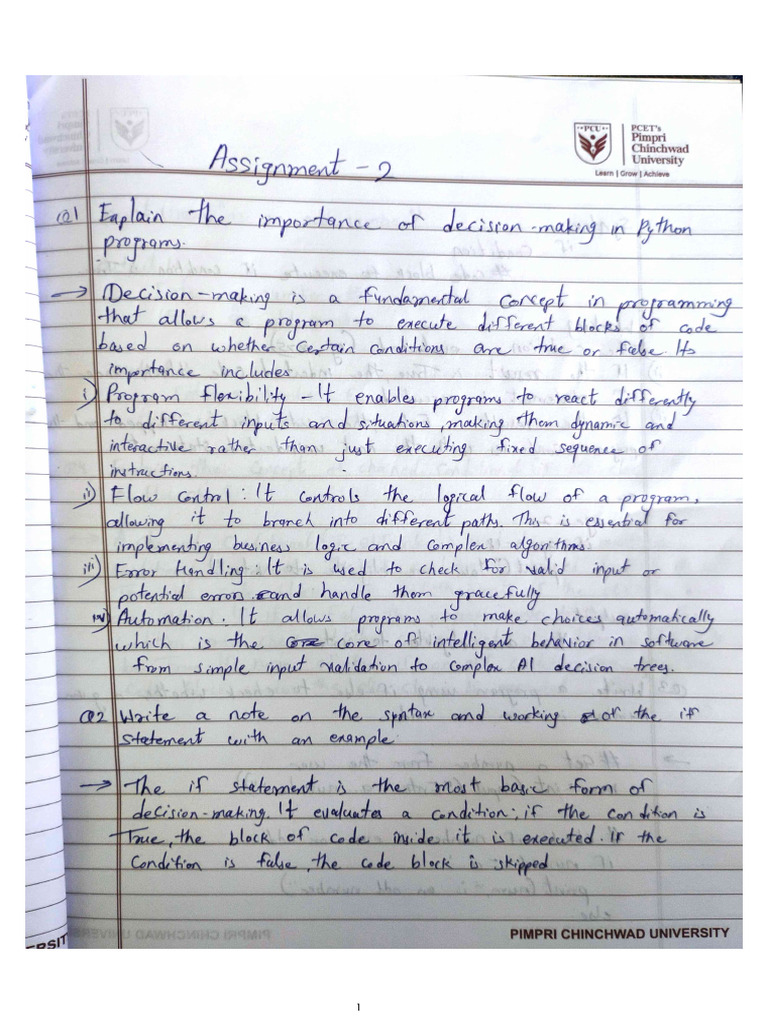 PCU
PCET's
Pimpri
Chinchwad
University
Learn | Grow | Achieve
Assignment - 2
Q1 Explain the importance of decision-making in Python
programs.
→ Decision-making is a fundamental concept in programming
that allows a program to execute different blocks of code
based on whether certain conditions are true or false Its
importance includes
i) Program flexibility - It enables programs to react differently
to different inputs and situations, making them dynamic and
interactive rather than just executing fixed sequence of
instructions.
ii) Flow control : It controls the logical flow of a program,
allowing it to branch into different paths. This is essential for
implementing business logic and complex algorithms
iii) Error Handling : It is used to check for valid input or
potential errors and handle them gracefully
iv) Automation. It allows programs to make choices automatically
which is the core of intelligent behavior in software
from simple input validation to complex AI decision trees.
Q2 Write a note on the syntax and working of the if
statement with an example.
→ The if statement is the most basic form of
decision-making. It evaluates a condition; if the condition is
True, the block of code inside it is executed. If the
Condition is false, the code block is skipped
PIMPRI CHINCHWAD UNIVERSITY
1